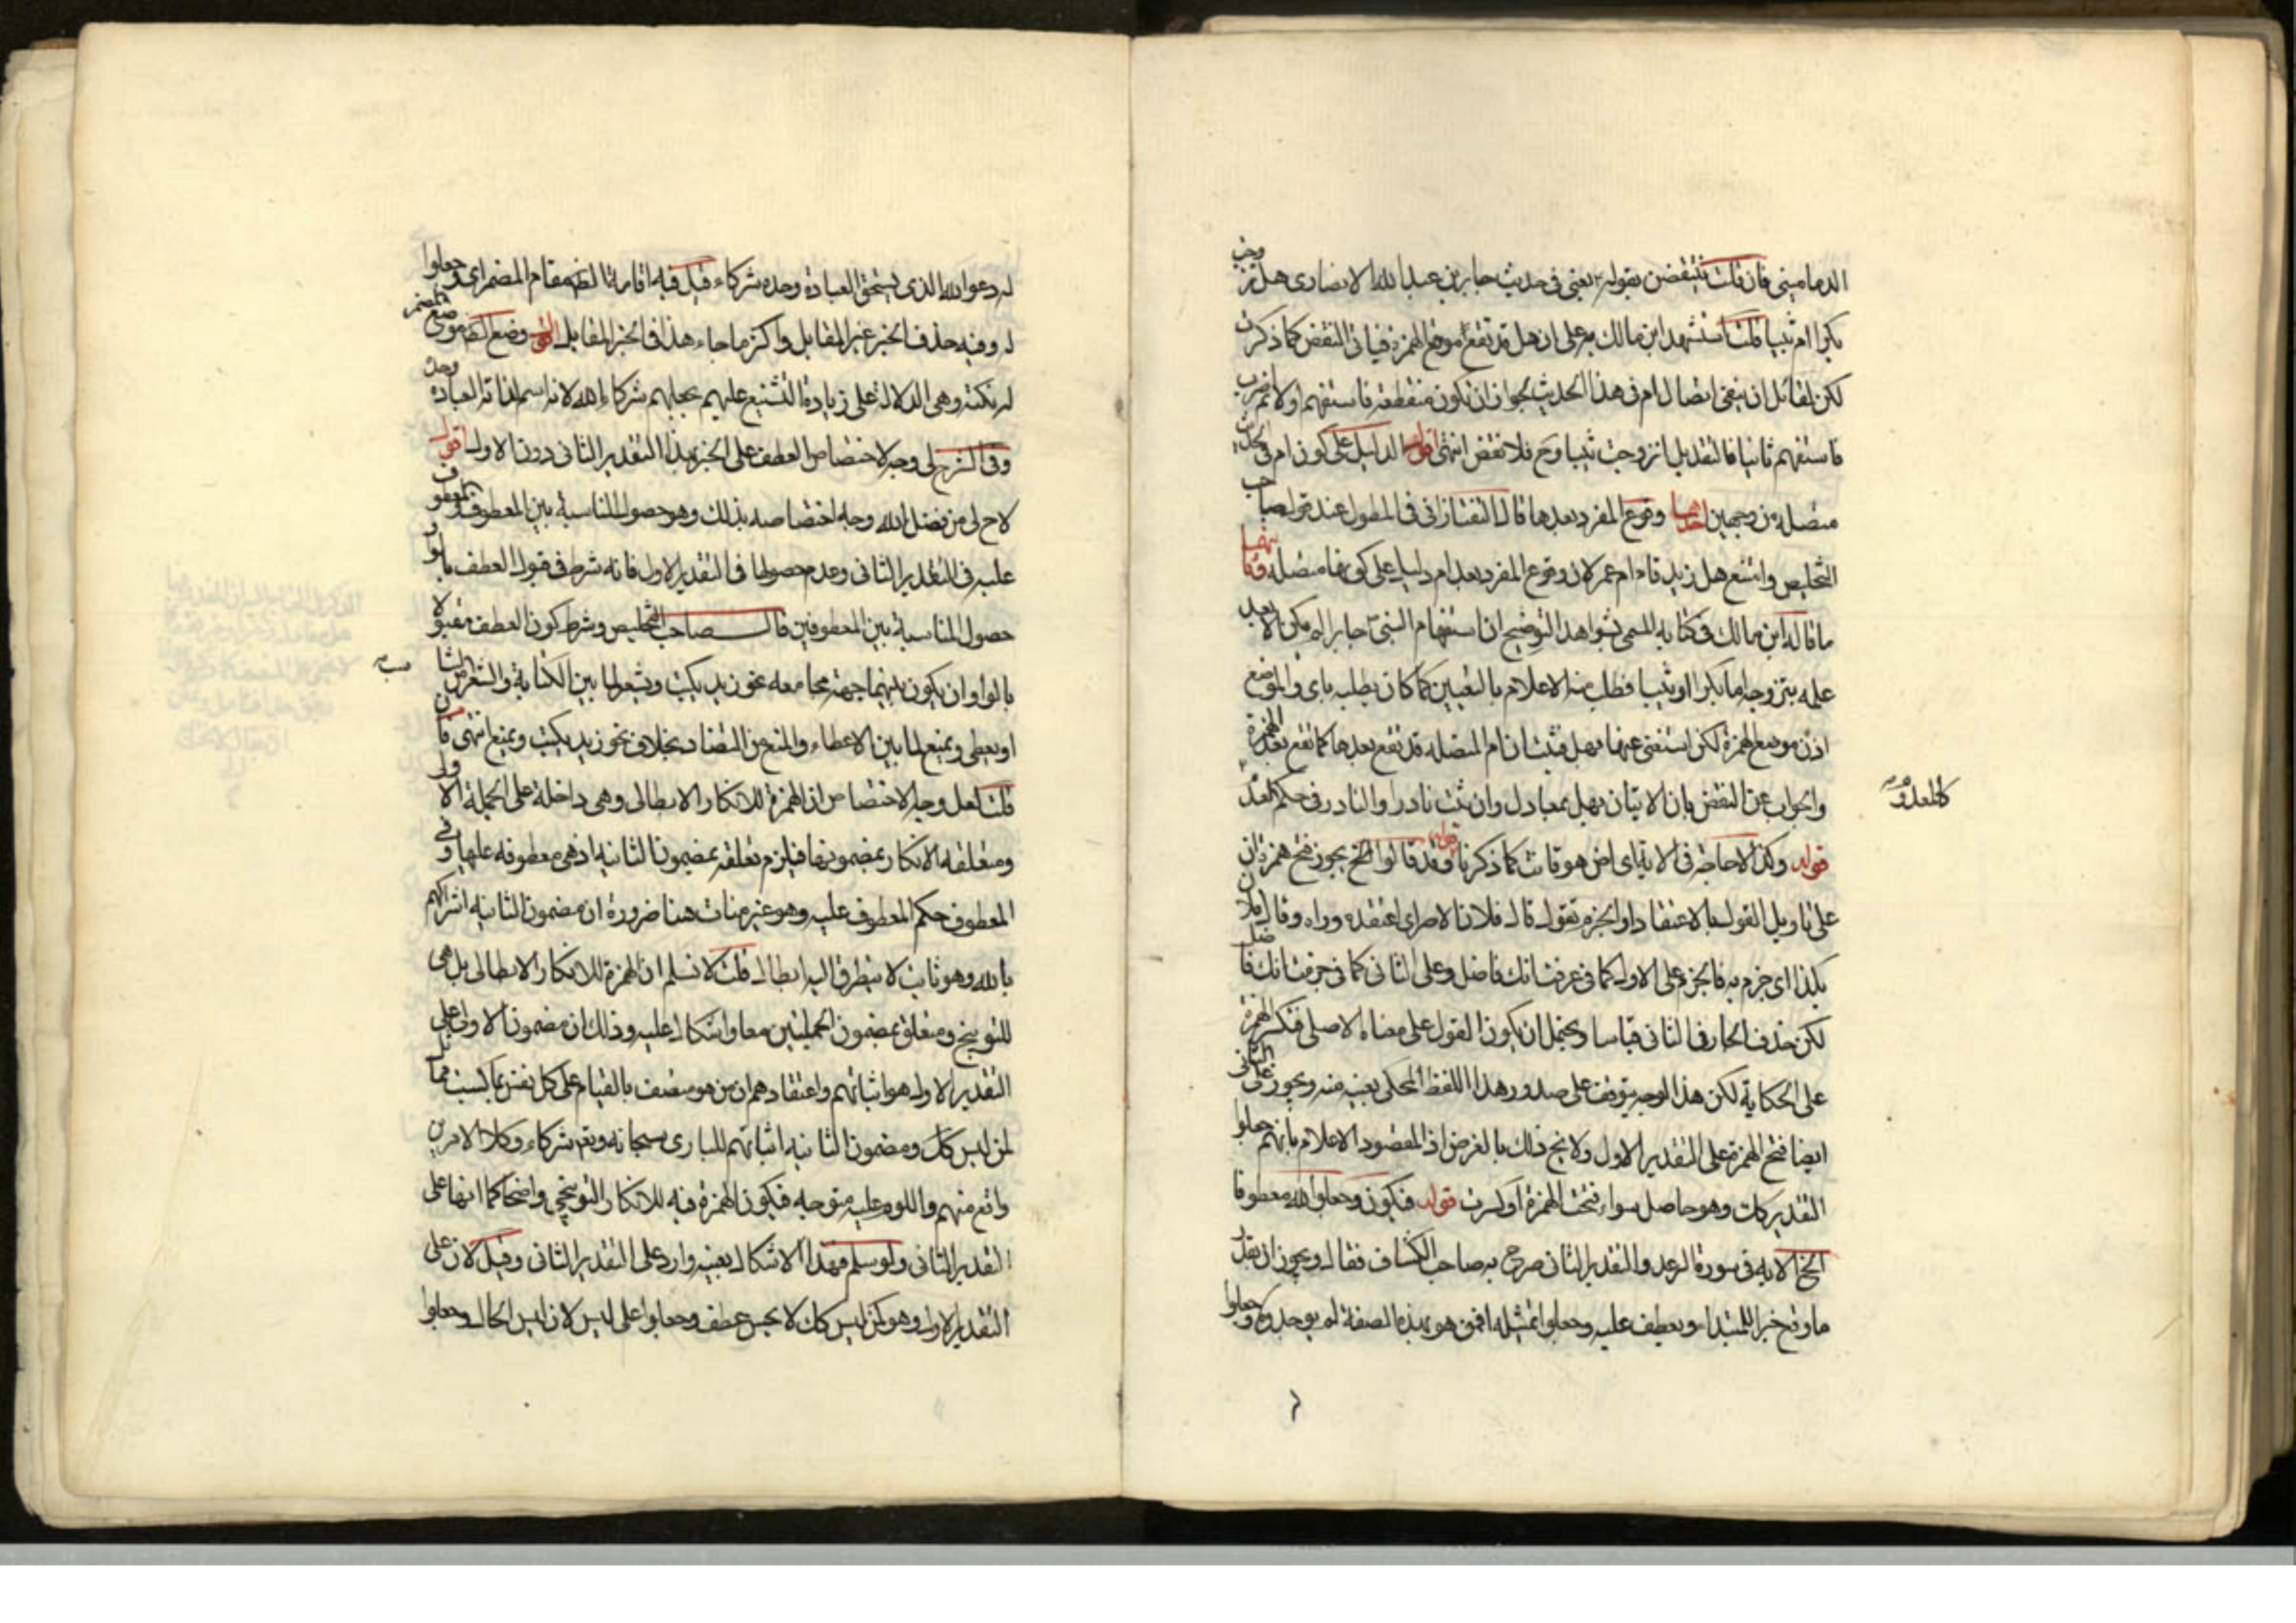 الدماميني فان قلت ينتقض بقوله يعني في حديث جابر بن عبد الله الانصاري هل تزوجت
بكرا ام ثيبا قلت استشهد ابن مالك به على ان هل قد تقع موقع الهمزة فياتي النقض كما ذكرت
لكن لقائل ان ينفي اتصال ام في هذا الحديث لجواز ان تكون منقطعة فاستفهم اولا ثم اضرب
فاستفهم ثانيا فالتقدير بل اتزوجت ثيبا وح فلا نقض انتهى اقول الدليل على كون ام في الحديث
متصلة من وجهين احدهما وقوع المفرد بعدها قال التفتازاني في المطول عند قول صاحب
التخليص وامتنع هل زيد قام ام عمر لان وقوع المفرد بعد ام دليل على كونها متصلة وثانيهما
ما قاله ابن مالك في كتابه المسمى بشواهد التوضيح ان استفهام النبي جابرا لم يكن الا بعد
علمه بتزوجه اما بكرا او ثيبا فطلب منه الاعلام بالتعيين كما كان يطلبه باي والموضع
اذن موضع الهمزة لكن استغني عنها بهل فثبت ان ام المتصلة قد تقع بعدها كما تقع بعد الهمزة
والجواب عن النقض بان الاتيان بهل بمعادل وان ثبت نادرا والنادر في حكم العدم
كالمعدوم
قوله وكذا لا حاجة في الاية اي امن هو قانت كما ذكرنا قوله وقد قالوا الخ يجوز فتح همزة ان
على تاويل القول بالاعتقاد او الجزم تقول قال فلان الامر اي اعتقده وراه وقال فلان
بكذا اي جزم به فالجزم على الاول كما في عرفت انك فاضل وعلى الثاني كما في جزمت انك فاضل
لكن حذف الجار في الثاني قياسا ويحتمل ان يكون القول على معناه الاصلي فتكسر الهمزة
على الحكاية لكن هذا الوجه يتوقف على صدور هذا اللفظ المحكي بعينه منه ويجوز على الثاني
ايضا فتح الهمزة على التقدير الاول ولا يخ ذلك بالغرض اذ المقصود الاعلام بانهم جعلوا
التقدير كك وهو حاصل سواء فتحت الهمزة او كسرت قوله فيكون وجعلوا لله معطوفا
الخ الاية في سورة الرعد والتقدير الثان صرح به صاحب الكشاف فقال ويجوز ان يقدر
ما وقع خبرا للمبتدا ويعطف عليه وجعلوا تمثيله افمن هو بهذه الصفة لم يوحدوه وجعلوا
له دعوا الله الذي يستحق العبادة وحده شركاء قيل فيه اقامة الظ مقام المضمر اي وجعلوا
له وفيه حذف الخبر عن المقابل واكثر ما جاء هذا في الخبر المقابل انتهى وضع الظ موضع المضمر
له نكتة وهي الدلالة على زيادة التشنيع عليهم بجعلهم شركاء لله لانه اسم لذاته العبادة وحده
وفي الشرح لي وجه لاختصاص العطف على الخبر بهذا التقدير الثاني دون الاول اقول
لاح لي من فضل الله وجه اختصاصه بذلك وهو حصول المناسبة بين المعطوف والمعطوف
عليه في التقدير الثاني وعدم حصولها في التقدير الاول فانه شرط في قبول العطف بالواو
حصول المناسبة بين المعطوفين قال صاحب التخليص وشرط كون العطف مقبولا
بالواو ان يكون بينهما جهة جامعه نحو زيد يكتب ويشعر لما بين الكتابة والشعر من التناسب
او يعطي ويمنع لما بين الاعطاء والمنع من التضاد بخلاف نحو زيد يكتب ويمنع انتهى فان
قلت لعل وجه الاختصاص ان الهمزة للانكار الابطالي وهي داخلة على الجملة الاولى
ومتعلقه الانكار بمضمونها فيلزم تعلقه بمضمون الثانية اذ هي معطوفه عليها وفي
المعطوف حكم المعطوف عليه وهو غير منات هنا ضرورة ان مضمون الثانية اشراكهم
بالله وهو ثابت لا يتطرق اليه ابطال قلت لا نسلم ان الهمزة للانكار الابطالي بل هي
للتوبيخ ومتعلق بمضمون الجملتين معا ولا اشكال عليه وذلك ان مضمون الاولى على
التقدير الاول هو اثباتهم واعتقادهم ان من هو متصف بالقيام على كل نفس بما كسبت مماثل
لمن ليس كك ومضمون الثانية اثباتهم للباري سبحانه وتعالى شركاء وكلا الامرين
واقع منهم واللوم عليه متوجه فيكون الهمزة فيه للانكار التوبيخي واضحا كما انها على
التقدير الثاني ولو سلم فهذا الاشكال بعينه وارد على التقدير الثاني وقيل لان على
التقدير الاول وهو كمن ليس كك لا يحسن عطف وجعلوا على ليس لان ليس للحال وجعلوا